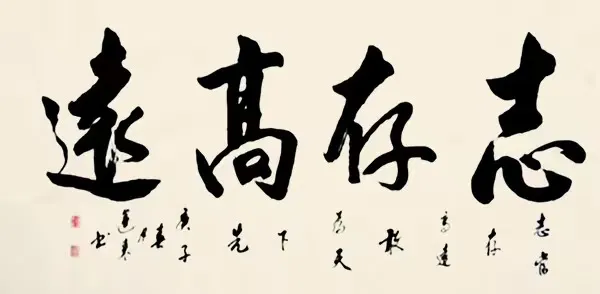 志存高遠
志當存高遠敢為天下先
庚子
書